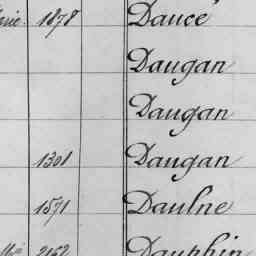 1878 Daucé
Daugan
Daugan
1301 Daugan
1571 Daulne
2152 Dauphin